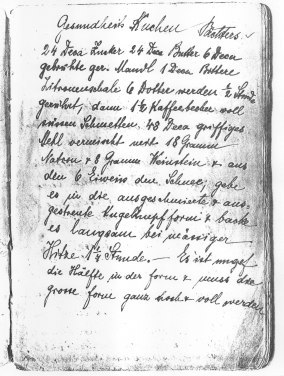 Gesundheits Kuchen
24 Deca Zucker 24 Deca Butter 6 Deca
ger. Mandl 1 Deca Bittere
Zitronenschale 6 Dotter werden ½ Stunde
gerührt, dann 1½ Kaffeebecher voll
süssen Schmetten. 48 Deca griffiges
Mehl vermischt mit 18 Gramm
Natron & 8 Gramm Weinstein & aus
den 6 Eiweiss den Schnee, gebe
es in die ausgeschmierte & aus-
gestreute form & backe
es langsam bei mässiger
Hitze Stunde. — Es ist
die Hälfte in der form & muss die
grosse form ganz hoch & voll werden